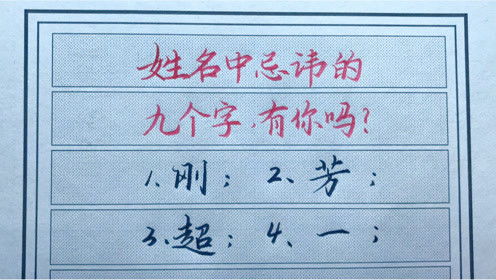 姓名中忌讳的
九个字,有你吗?
1、刚; 2、芳;
3、超; 4、一;